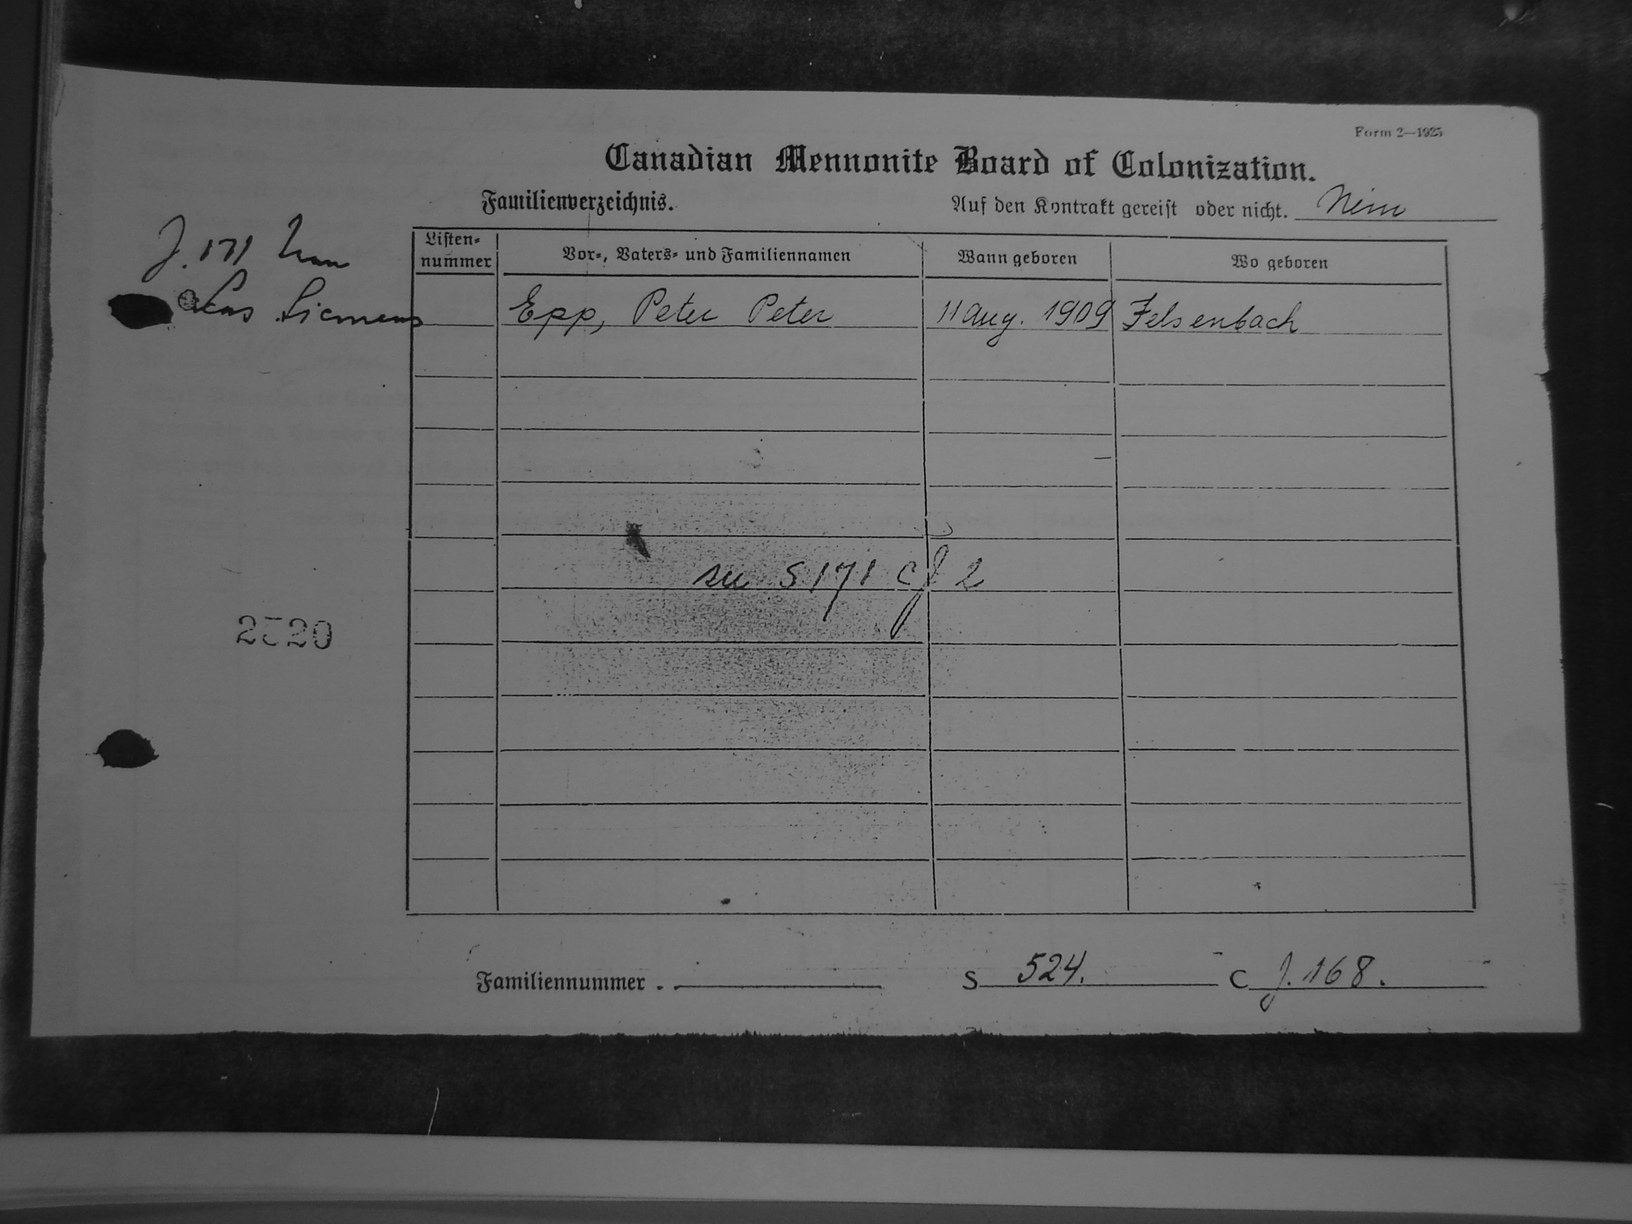 Form 2—1925
Canadian Mennonite Board of Colonization.
Familienverzeichnis.
Auf den Kontrakt gereist oder nicht. Nein
J. 171
Siemens
Listen-nummer Vor-, Vaters- und Familiennamen Wann geboren Wo geboren
Epp, Peter Peter 11 Aug. 1909 Felsenbach
zu S 171 CJ 2
2520
Familiennummer . S 524. C J. 168.